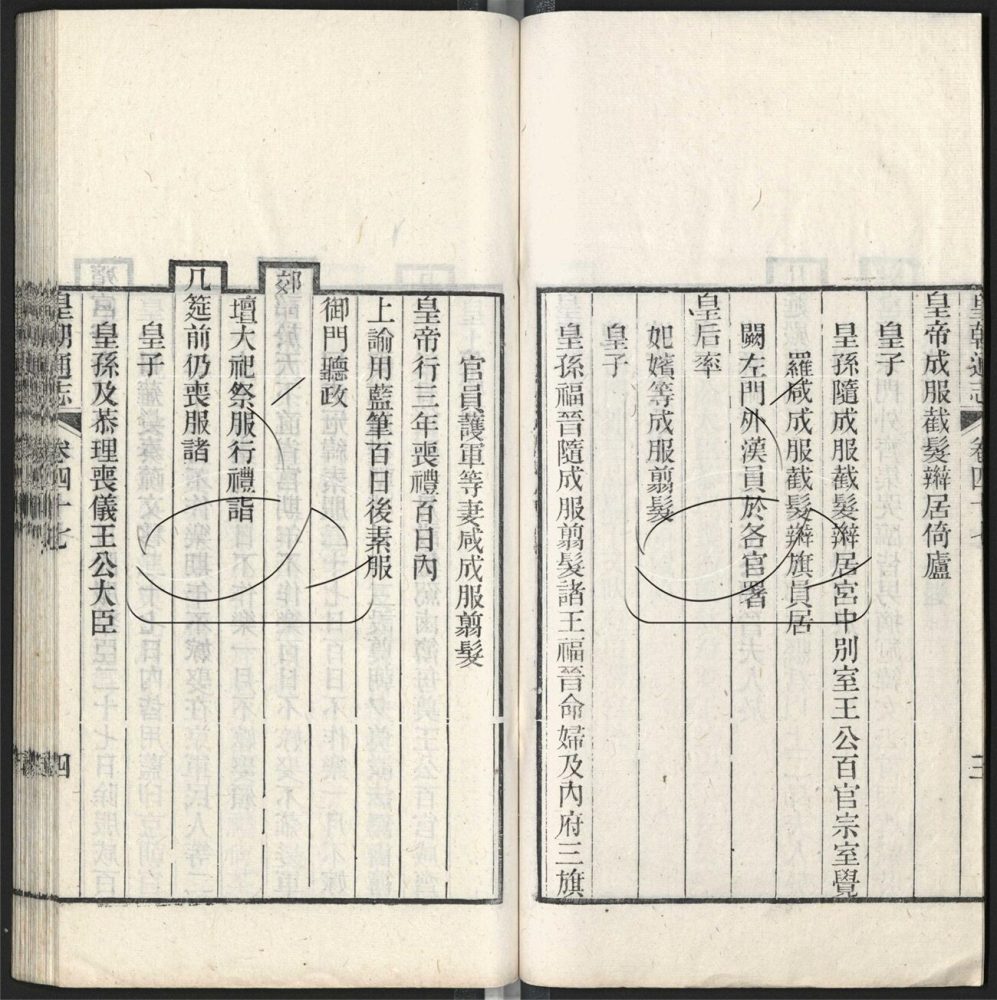 皇朝通志 卷四十七 三
皇帝成服截髮辮居倚廬
皇子
皇孫隨成服截髮辮居宮中別室王公百官宗室覺
羅咸成服截髮辮旗員居
闕左門外漢員於各官署
皇后率
妃嬪等成服翦髮
皇子
皇孫福晉隨成服翦髮諸王福晉命婦及內府三旗
官員護軍等妻咸成服翦髮
皇帝行三年喪禮百日內
上諭用藍筆百日後素服
御門聽政
郊
壇大祀祭服行禮詣
几筵前仍喪服諸
皇子
皇孫及恭理喪儀王公大臣
皇朝通志 卷四十七 四